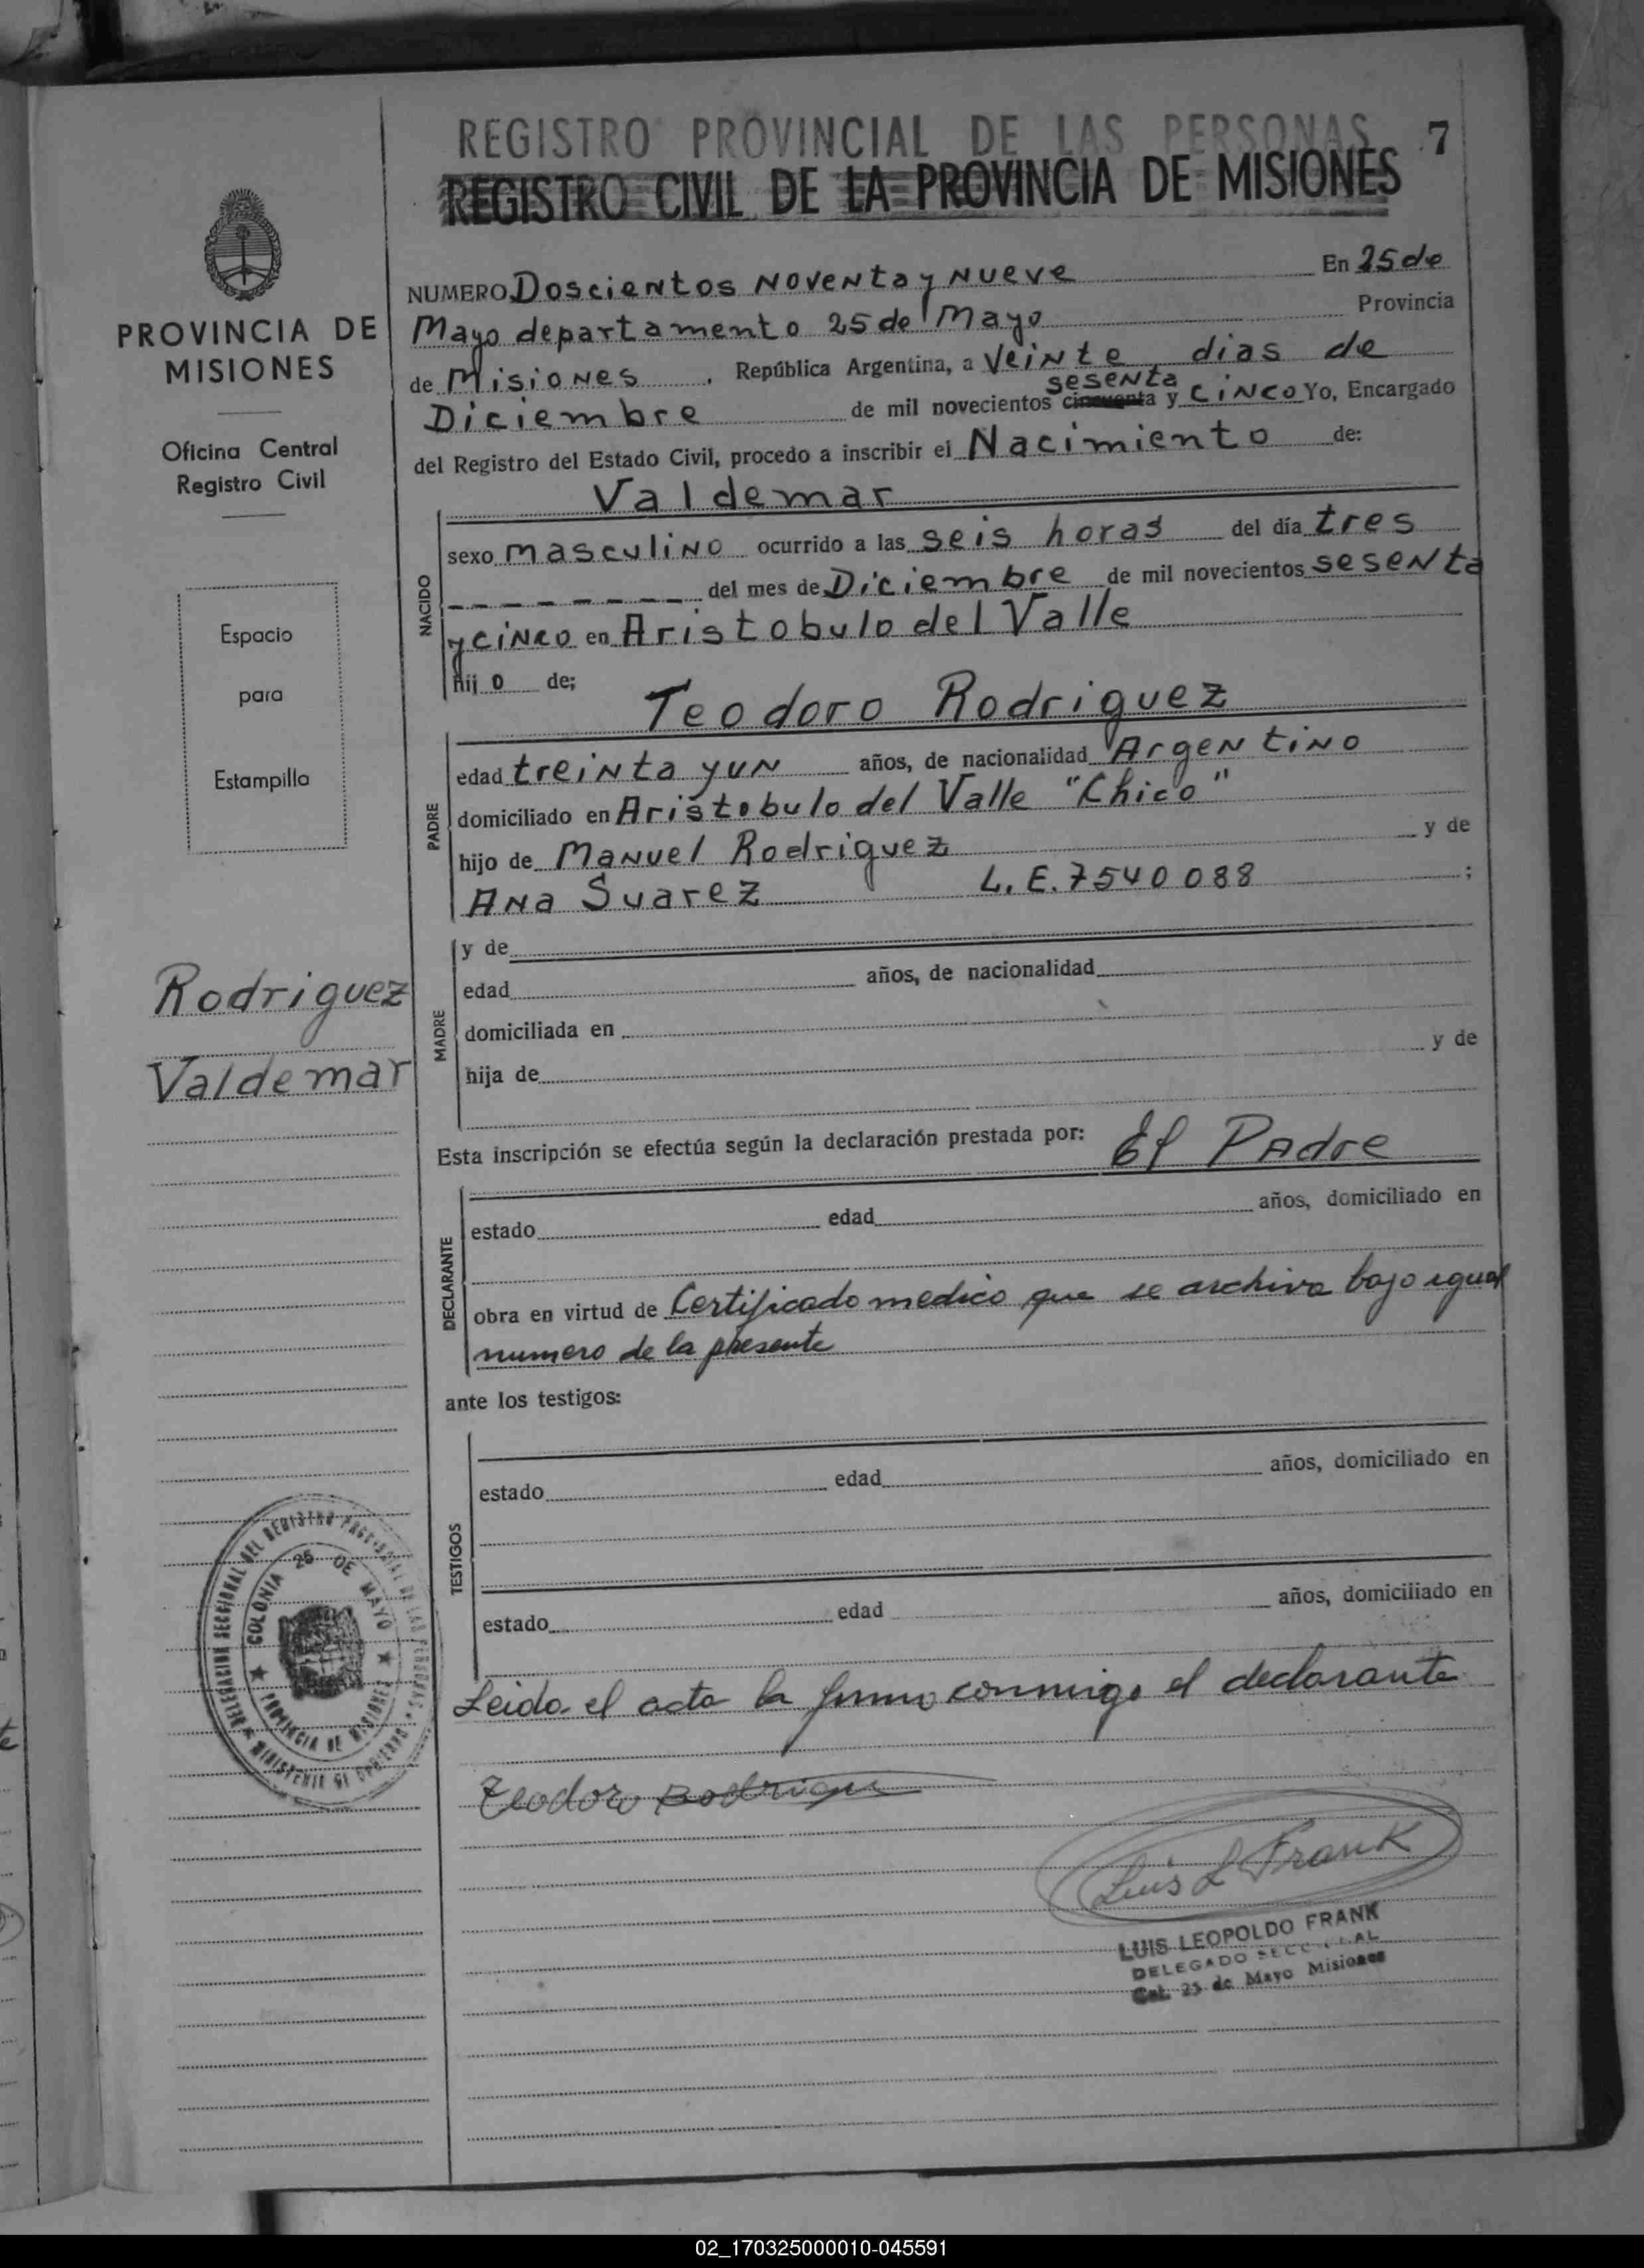 REGISTRO PROVINCIAL DE LAS PERSONAS 7
REGISTRO CIVIL DE LA PROVINCIA DE MISIONES
PROVINCIA DE
MISIONES
Oficina Central
Registro Civil
Espacio
para
Estampilla
Rodriguez
Valdemar
NUMERO Doscientos Noventa y Nueve En 25 de
Mayo departamento 25 de Mayo Provincia
de Misiones, República Argentina, a Veinte dias de
sesenta
Diciembre de mil novecientos cincuenta y cinco Yo, Encargado
del Registro del Estado Civil, procedo a inscribir el Nacimiento de:
Valdemar
NACIDO
sexo masculino ocurrido a las seis horas del día tres
del mes de Diciembre de mil novecientos sesenta
y cinco en Aristobulo del Valle
hij o de;
Teodoro Rodriguez
PADRE
edad treinta y un años, de nacionalidad Argentino
domiciliado en Aristobulo del Valle "Chico"
hijo de Manuel Rodriguez y de
Ana Suarez L. E. 7540088 ;
MADRE
y de
edad años, de nacionalidad
domiciliada en
hija de y de
Esta inscripción se efectúa según la declaración prestada por: El Padre
DECLARANTE
estado edad años, domiciliado en
obra en virtud de Certificado medico que se archiva bajo igual
numero de la presente
ante los testigos:
TESTIGOS
estado edad años, domiciliado en
estado edad años, domiciliado en
Leida el acta la firma conmigo el declarante
DELEGACION SECCIONAL DEL REGISTRO PROVINCIAL DE LAS PERSONAS
COLONIA 25 DE MAYO
PROVINCIA DE MISIONES
Teodoro Rodriguez
Luis L Frank
LUIS LEOPOLDO FRANK
DELEGADO SECCIONAL
Col. 25 de Mayo Misiones
02_170325000010-045591